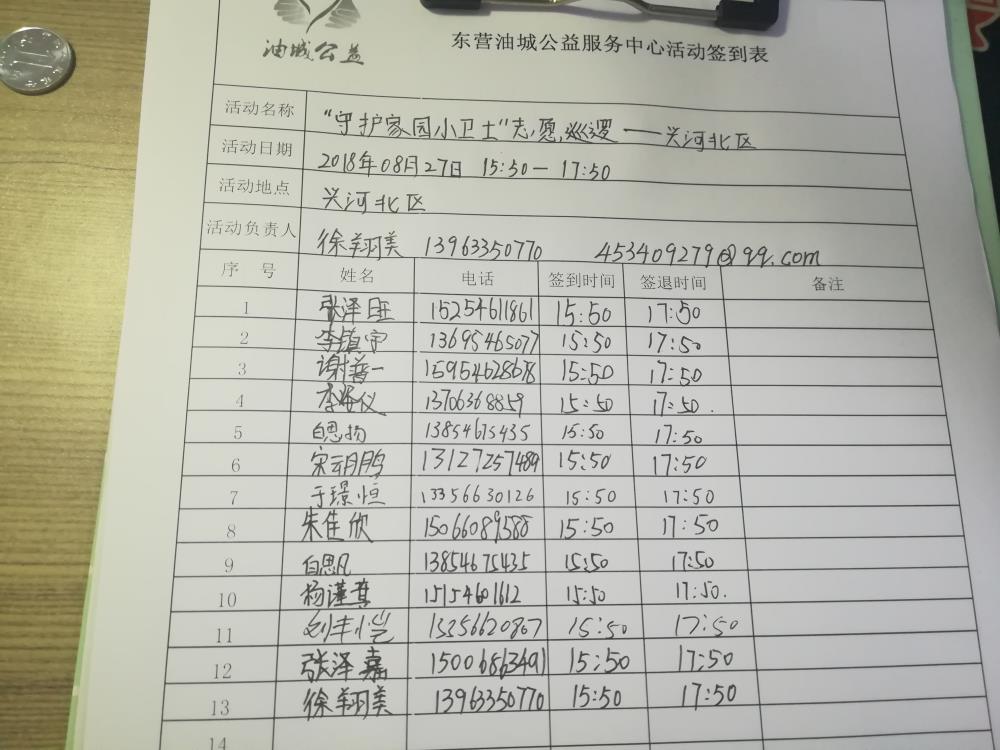 油城公益
东营油城公益服务中心活动签到表
活动名称 "守护家园小卫士"志愿巡逻——兴河北区
活动日期 2018年08月27日 15:50— 17:50
活动地点 兴河北区
活动负责人 徐翔美 13963350770 453409279@qq.com
序号 姓名 电话 签到时间 签退时间 备注
1 张泽旺 15254611861 15:50 17:50
2 李镇宇 13695465077 15:50 17:50
3 谢普一 15954628678 15:50 17:50
4 李 仪 13706368859 15:50 17:50.
5 白思扬 13854675435 15:50 17:50
6 宋云鹏 13127257489 15:50 17:50
7 于璟恒 13356630126 15:50 17:50
8 朱佳欣 15066089588 15:50 17:50
9 白思凡 13854675435 15:50 17:50
10 杨谨 15154601612 15:50 17:50.
11 刘丰恺 13356620807 15:50 17:50
12 张泽嘉 15006863491 15:50 17:50
13 徐翔美 13963350770 15:50 17:50
14